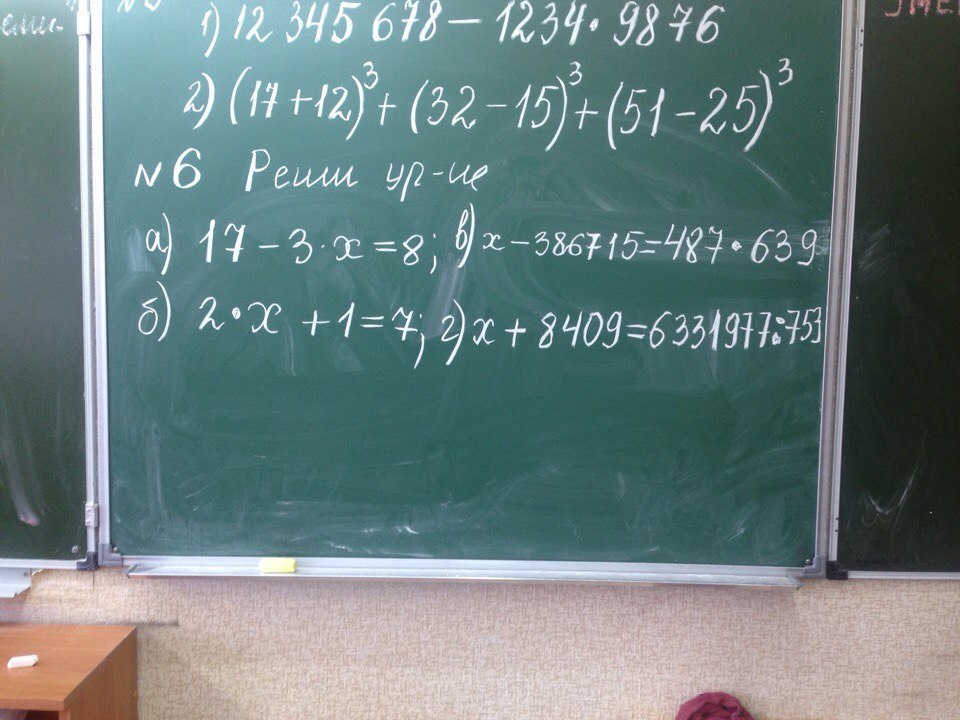 1) 12 345 678 – 1234 · 9876
2) (17 + 12)³ + (32 – 15)³ + (51 – 25)³
№6 Реши ур-це
а) 17 – 3 · x = 8; в) x – 386715 = 487 · 639
б) 2 · x + 1 = 7; г) x + 8409 = 6331977 : 753